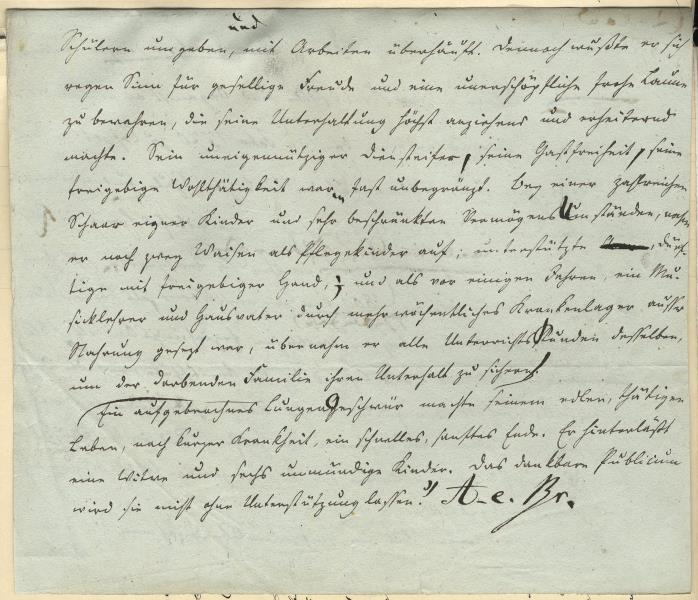 und
Schülern umgeben, mit Arbeiten überhäuft. Dennoch wußte er sich
regen Sinn für gesellige Freude und eine unerschöpfliche frohe Laune
zu bewahren, die seine Unterhaltung höchst anziehend und erheiternd
machte. Sein uneigennütziger Diensteifer, seine Gastfreiheit, seine
freigebige Wohlthätigkeit war fast unbegränzt. Bey einer zahlreichen
Schaar eigner Kinder und sehr beschränkten Vermögens Umständen, nahm
er noch zwey Waisen als Pflegekinder auf; unterstützte dürf-
tige mit freigebiger Hand, und als vor einigen Jahren, ein Mu-
sicklehrer und Hausvater durch mehrwöchentliches Krankenlager ausser
Nahrung gesezt war, übernahm er alle Unterrichts Stunden desselben,
um der darbenden Familie ihren Unterhalt zu sichern.
Ein aufgebrochnes Lungen Geschwür machte seinem edlen, thätigen
Leben, nach kurzer Krankheit, ein schnelles, sanftes Ende. Er hinterläßt
eine Witwe und sechs unmündige Kinder. Das dankbare Publicum
wird sie nicht ohne Unterstützung lassen." A-e. Br.